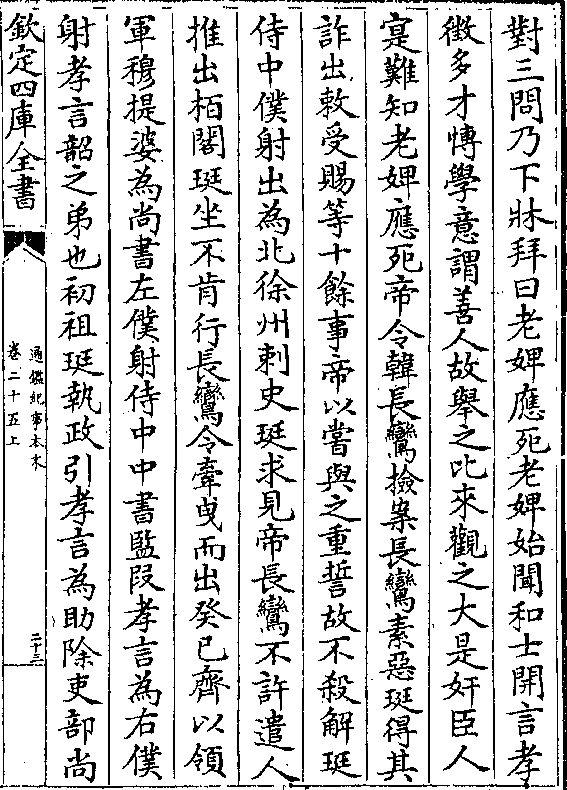 對三問乃下牀拜曰老婢應死老婢始聞和士開言孝
徵多才博學意謂善人故舉之比來觀之大是奸臣人
寔難知老婢應死帝令韓長鸞檢案長鸞素惡珽得其
詐出敕受賜等十餘事帝以嘗與之重誓故不殺解珽
侍中僕射出為北徐州刺史珽求見帝長鸞不許遣人
推出栢閤珽坐不肯行長鸞令牽曳而出癸巳齊以領
軍穆提婆為尚書左僕射侍中中書監段孝言為右僕
射孝言韶之弟也初祖珽執政引孝言為助除吏部尚
欽定四庫全書
通鑑紀事本末
卷二十五上
二十三